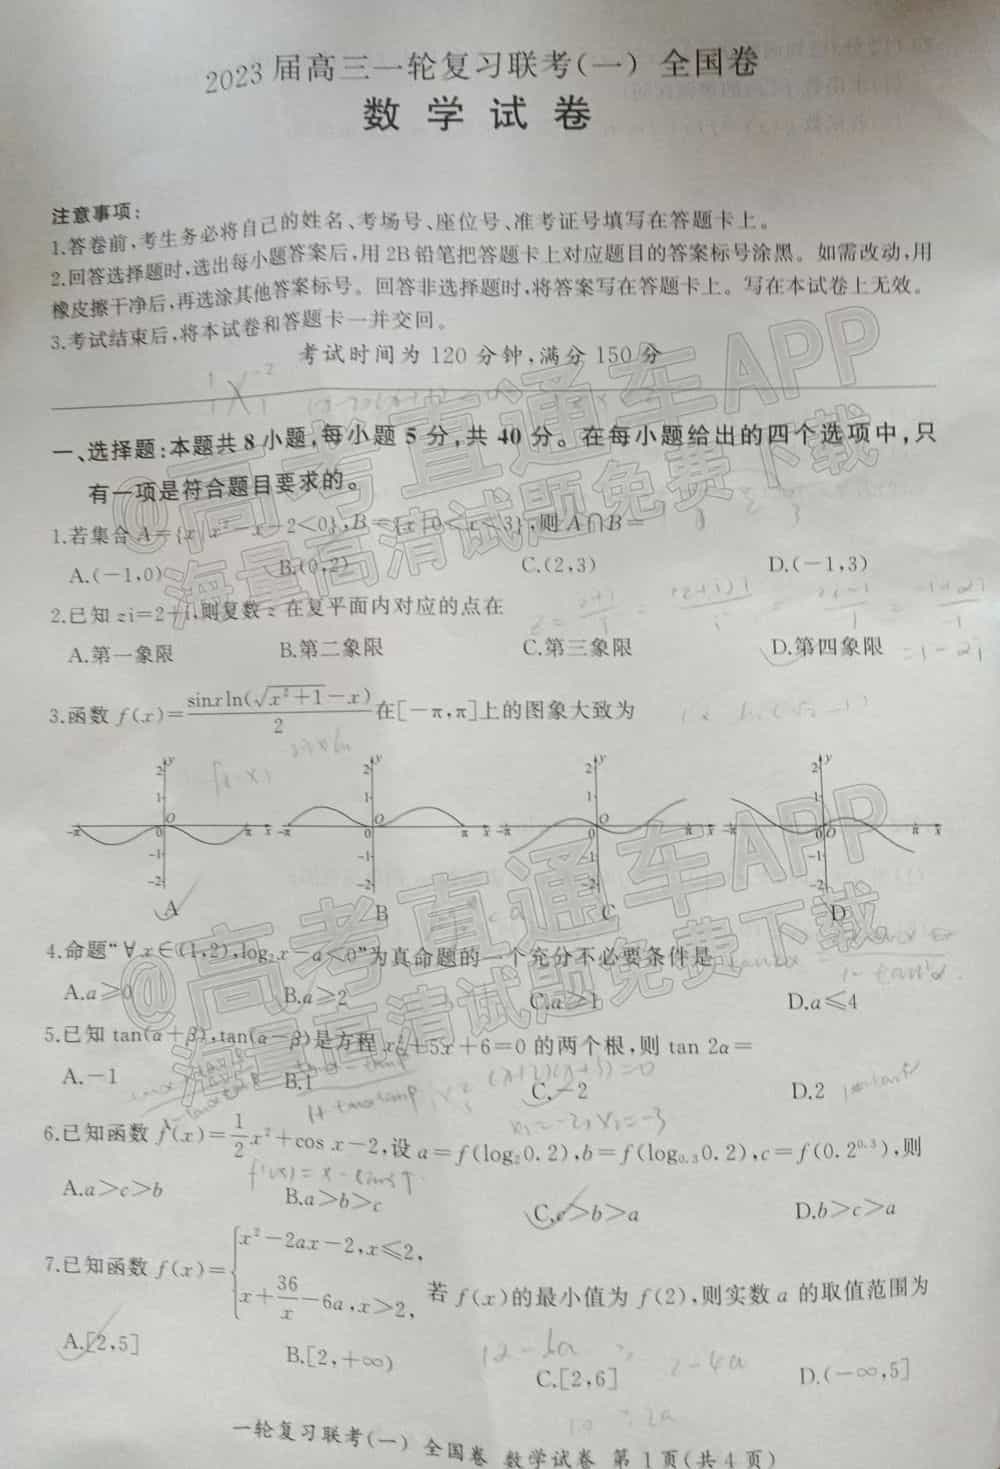 2023届高三一轮复习联考(一) 全国卷
数学试卷
注意事项:
1.答卷前,考生务必将自己的姓名、考场号、座位号、准考证号填写在答题卡上。
2.回答选择题时,选出每小题答案后,用2B铅笔把答题卡上对应题目的答案标号涂黑。如需改动,用
橡皮擦干净后,再选涂其他答案标号。回答非选择题时,将答案写在答题卡上。写在本试卷上无效。
3.考试结束后,将本试卷和答题卡一并交回。
考试时间为120分钟,满分150分
一、选择题:本题共8小题,每小题5分,共40分。在每小题给出的四个选项中,只
有一项是符合题目要求的。
@高考直通车APP
海量高清试题免费下载
1.若集合A={x|x²-x-2<0},B={x|0<x<3},则A∩B=
A.(-1,0) B.(0,2) C.(2,3) D.(-1,3)
2.已知zi=2+i,则复数z在复平面内对应的点在
A.第一象限 B.第二象限 C.第三象限 D.第四象限
=1-2i
3.函数f(x)=sinxln(√(x²+1)-x)/2在[-π,π]上的图象大致为
A B C D
@高考直通车APP
海量高清试题免费下载
4.命题“∀x∈(1,2),log₂x-a<0”为真命题的一个充分不必要条件是
A.a≥0 B.a≥2 C.a≥1 D.a≤4
5.已知tan(α+β),tan(α-β)是方程x²+5x+6=0的两个根,则tan 2α=
A.-1 B.1 C.-2 D.2
(x+2)(x+3)=0
x₁=-2,x₂=-3
6.已知函数f(x)=1/2x²+cos x-2,设a=f(log₂0.2),b=f(log₀.₃0.2),c=f(0.2⁰·³),则
f'(x)=x-sinx↑
A.a>c>b B.a>b>c C.c>b>a D.b>c>a
7.已知函数f(x)={x²-2ax-2,x≤2, x+36/x-6a,x>2,若f(x)的最小值为f(2),则实数a的取值范围为
A.[2,5] B.[2,+∞) C.[2,6] D.(-∞,5]
12-6a ≥ 2-4a
10 ≥ 2a
一轮复习联考(一) 全国卷 数学试卷 第1页(共4页)